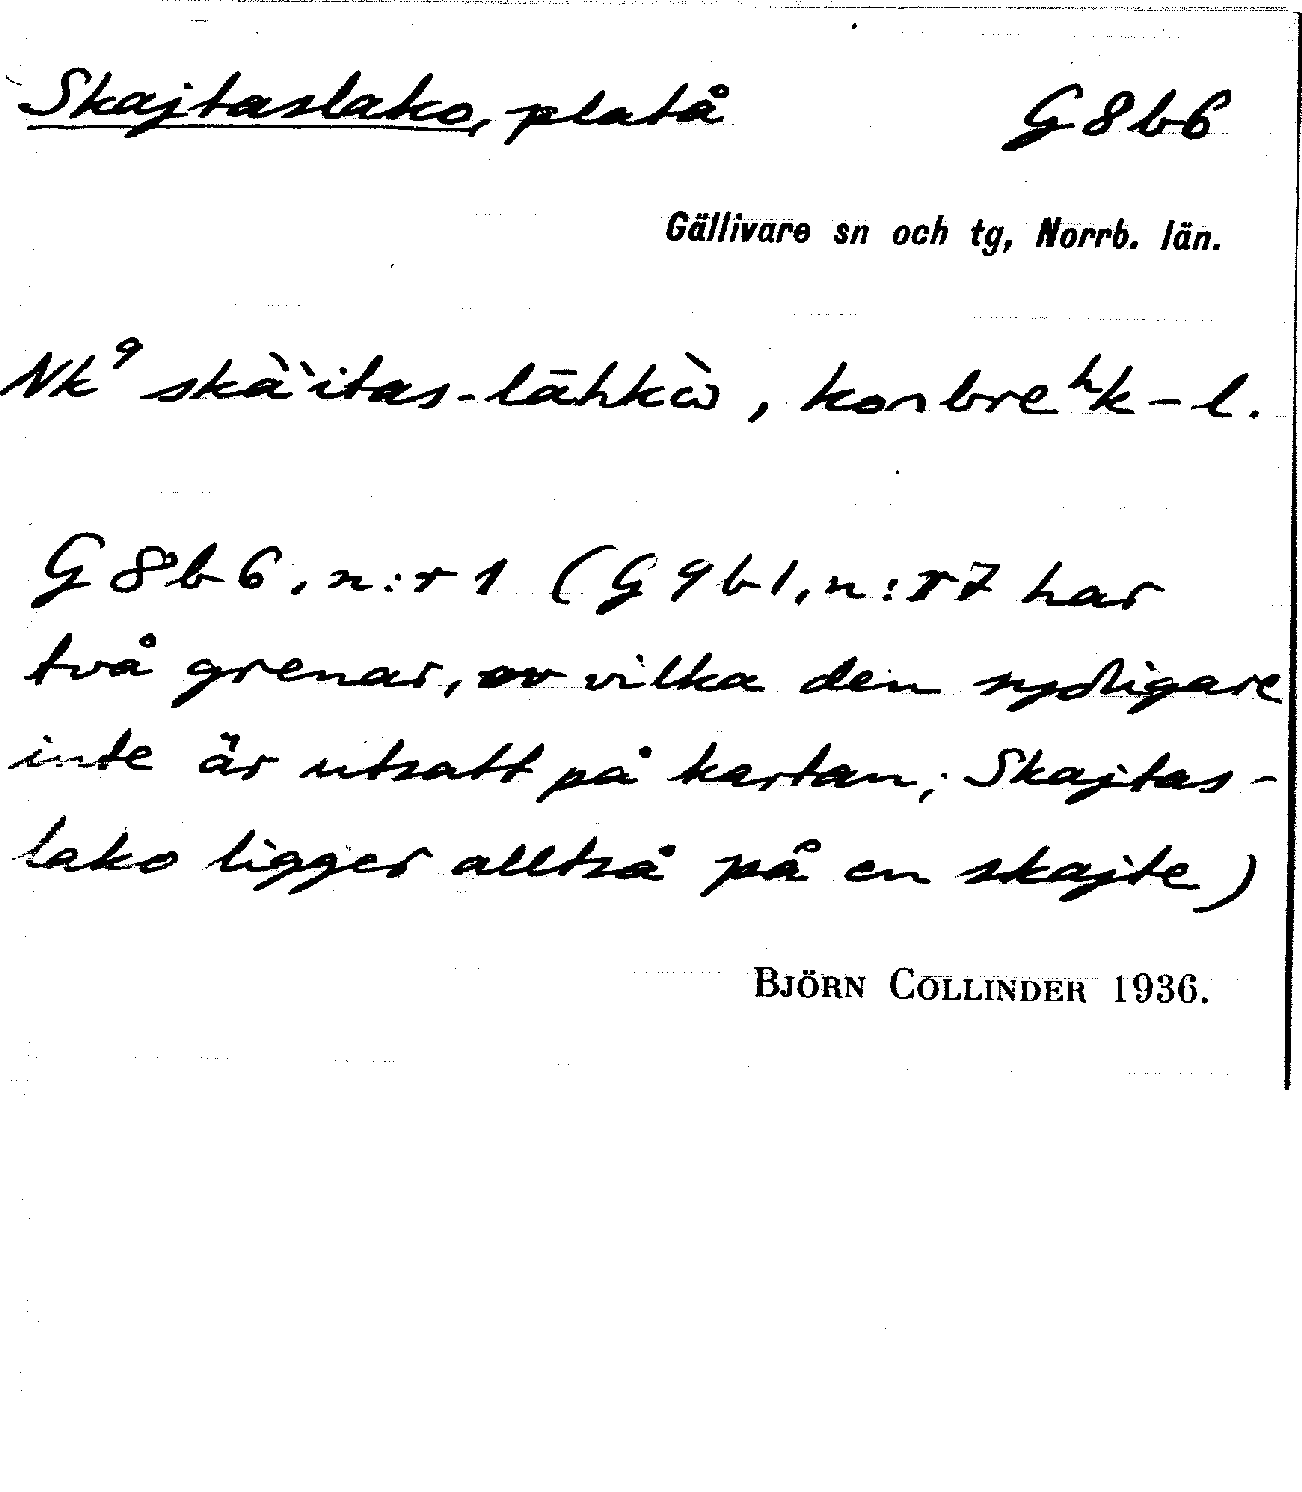 Skajtaslako, platå G 8 b 6
Gällivare sn och tg, Norrb. län.
Nk⁹ skà`itas-lāhkὼ, konbreʰk-l.
G 8 b 6, n:r 1 (G 9 b 1, n:r 7 har
två grenar, av vilka den sydligare
inte är utsatt på kartan; Skajtas-
lako ligger alltså på en skajte)
BJÖRN COLLINDER 1936.